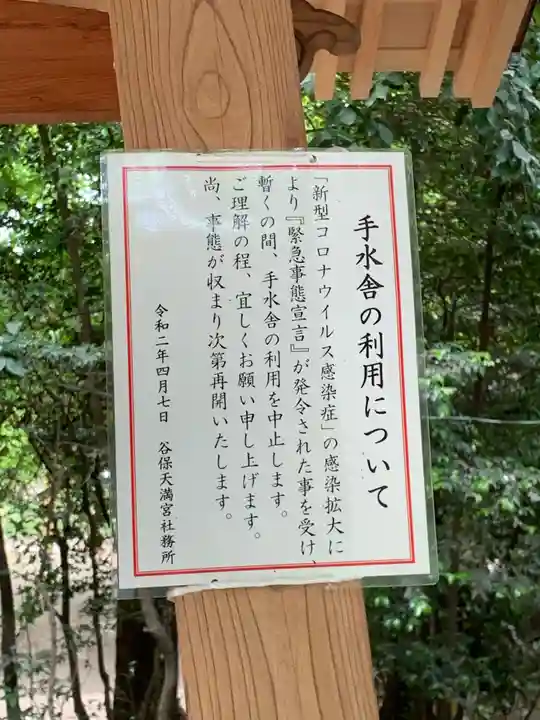 手水舎の利用について
「新型コロナウイルス感染症」の感染拡大に
より『緊急事態宣言』が発令された事を受け、
暫くの間、手水舎の利用を中止します。
ご理解の程、宜しくお願い申し上げます。
尚、事態が収まり次第再開いたします。
令和二年四月七日 谷保天満宮社務所